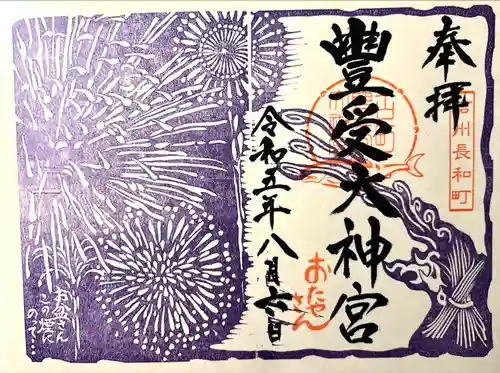 奉拝
信州長和町
豊受大神宮
おたやさん
令和五年八月六日
お盆さん
この煙に
のって